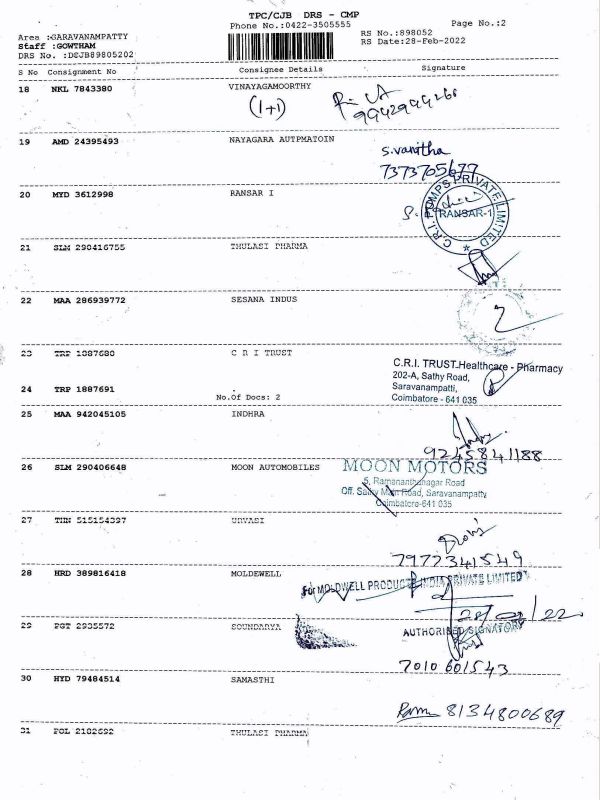 TPC/CJB DRS - CMP
Phone No.:0422-3505555
Page No.:2
Area :SARAVANAMPATTY
RS No.:898052
Staff :GOWTHAM
RS Date:28-Feb-2022
DRS No. :DCJB89805202
S No Consignment No Consignee Details Signature
18 NKL 7843380 VINAYAGAMOORTHY
(1+1)
9942999268
19 AMD 24395493 NAYAGARA AUTPMATOIN
S.vanitha
7373705677
20 MYD 3612998 RANSAR I
C.R.I. PUMPS PRIVATE LIMITED
RANSAR-1
21 SLM 290416755 THULASI PHARMA
22 MAA 286939772 SESANA INDUS
23 TRP 1887680 C R I TRUST
C.R.I. TRUST.Healthcare - Pharmacy
202-A, Sathy Road,
Saravanampatti,
Coimbatore - 641 035
24 TRP 1887691
No.Of Docs: 2
25 MAA 942045105 INDHRA
9245841188
26 SLM 290406648 MOON AUTOMOBILES
MOON MOTORS
5, Ramananthanagar Road
Off. Sathy Main Road, Saravanampatty
Coimbatore-641 035
27 TNN 515154397 URVASI
7977341549
28 HRD 389816418 MOLDEWELL
For MOLDWELL PRODUCTS INDIA PRIVATE LIMITED
29 PGT 2935572 SOUNDARYA
AUTHORISED SIGNATORY
7010601543
30 HYD 79484514 SAMASTHI
8134800689
31 POL 2182692 THULASI PHARMA